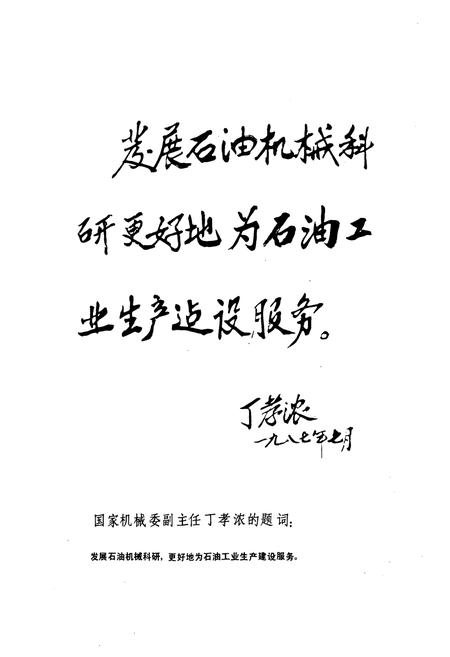 发展石油机械科
研更好地为石油工
业生产建设服务。
丁孝浓
一九八七年七月
国家机械委副主任丁孝浓的题词：
发展石油机械科研，更好地为石油工业生产建设服务。